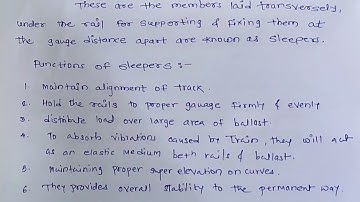 These are the members laid transversely,
under the rail for supporting & fixing them at
the gauge distance apart are known as sleepers.
Functions of sleepers :-
1. Maintain alignment of track.
2. Hold the rails to proper gauage firmly & evenly
3. distribute load over large area of ballast.
4. To absorb vibrations caused by Train, they will act
as an elastic medium beth rails & ballast.
5. Maintaining proper super elevation on curves.
6. They provides overall stability to the permanent way.